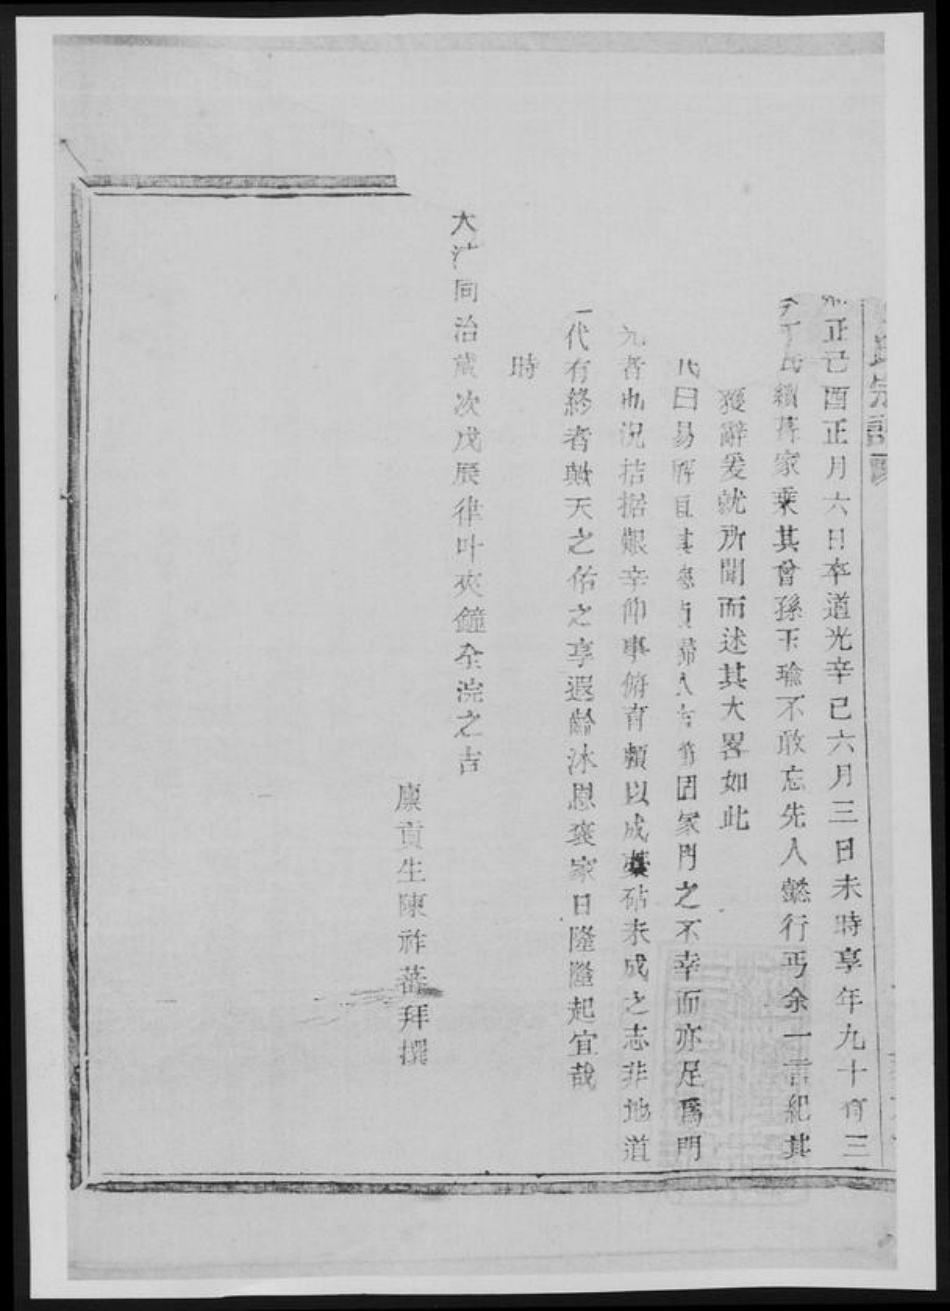 氏宗譜
正己酉正月六日卒道光辛巳六月三日未時享年九十有三
氏續葺家乘其曾孫玉瑜不敢忘先人懿行丐余一言紀其
獲辭爰就所聞而述其大畧如此
曰易所固家門之不幸而亦足爲門
者也況拮据艱辛仰事俯育頼以成藁砧未成之志非地道
代有終者歟天之佑之享遐齡沐恩褒家日隆隆起宜哉
時
大清同治歲次戊辰律叶夾鐘全浣之吉
廩貢生陳祚蕃拜撰